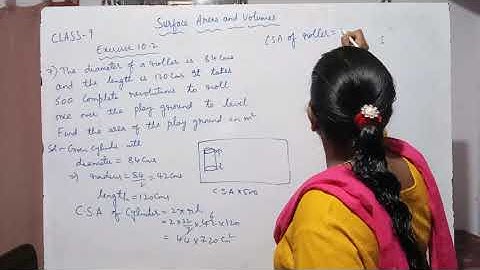 Surface Areas and Volumes
CLASS-9
Exercise 10.2
7) The diameter of a roller is 84cms
and the length is 120cms It takes
500 complete revolutions to roll
once over the play ground to level
Find the area of the play ground in m²
Sol- Given cylinder with
diameter = 84cms
⇒ radius = 84/2 = 42cms
length = 120cms
C.S.A of Cylinder = 2πrh
= 2×22/7×42×120
= 44×720cm²
C.S.A×500
CSA of roller =